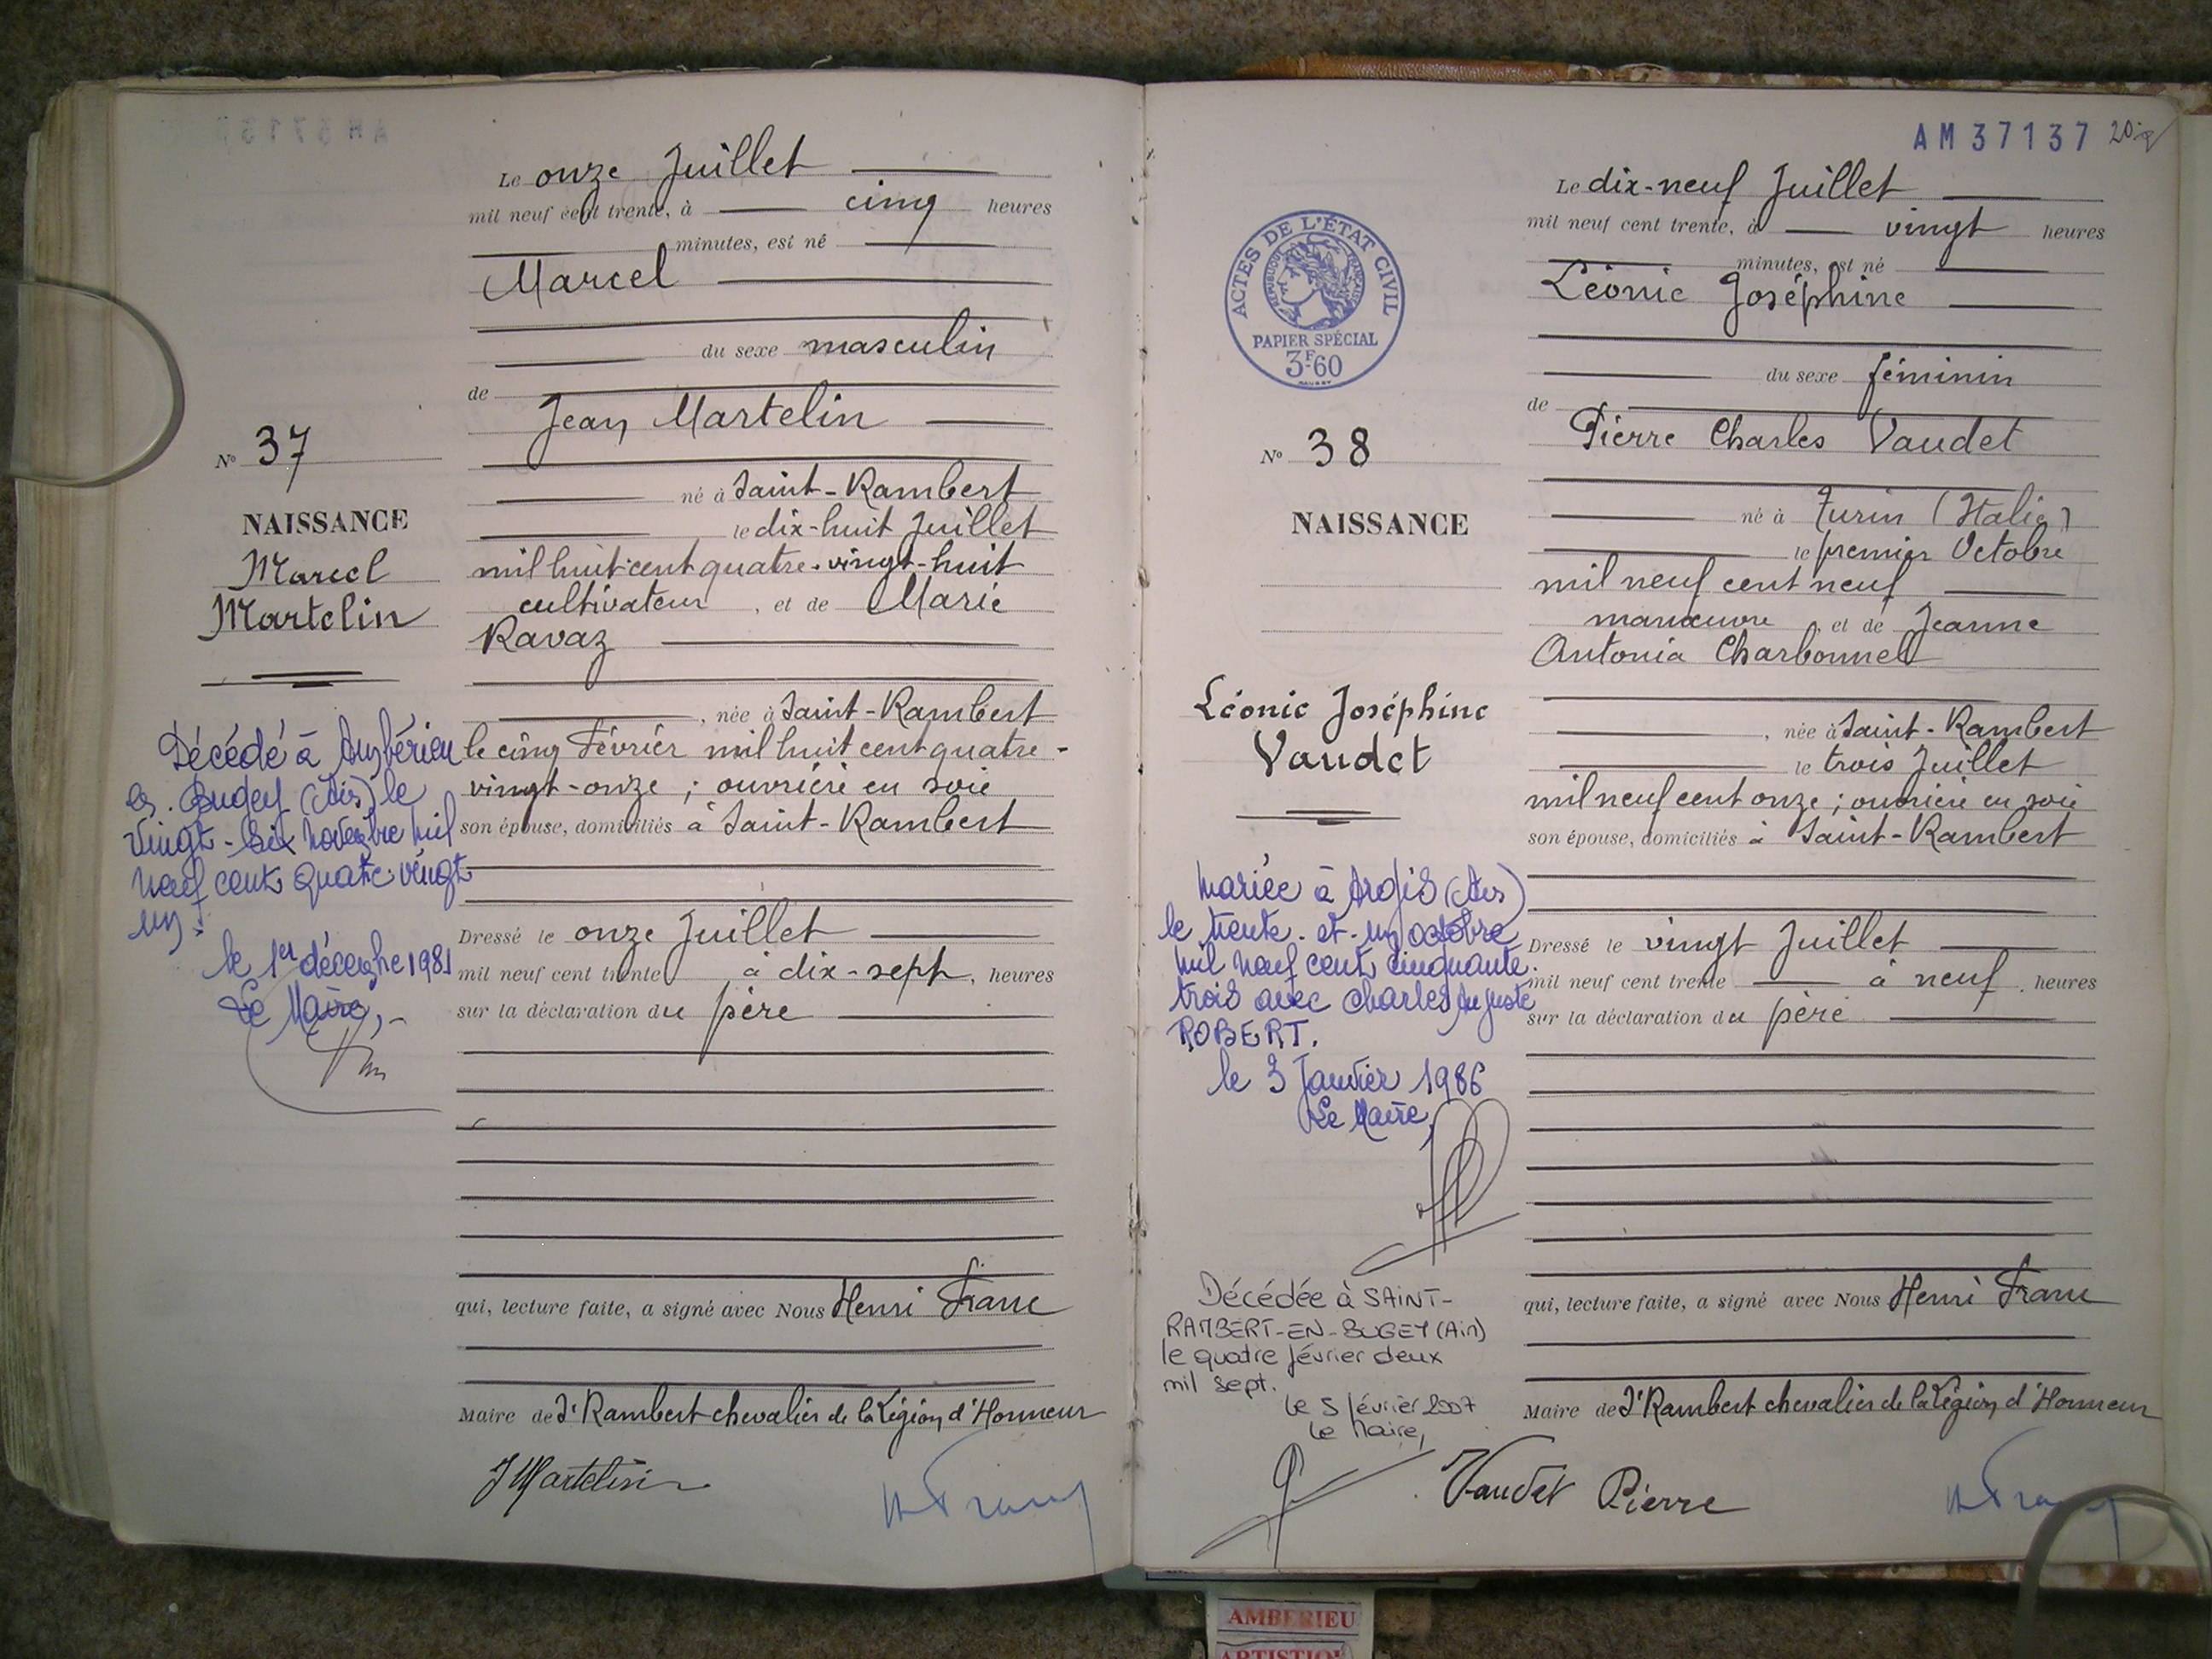 Le onze Juillet
mil neuf cent trente, à cinq heures
minutes, est né
Marcel
du sexe masculin
de
Jean Martelin
né à Saint-Rambert
le dix-huit Juillet
mil huit cent quatre-vingt-huit
cultivateur, et de Marie
Ravaz
, née à Saint-Rambert
le cinq Février mil huit cent quatre-
vingt-onze ; ouvrière en soie
son épouse, domiciliés à Saint-Rambert
Dressé le onze Juillet
mil neuf cent trente à dix-sept, heures
sur la déclaration du père
qui, lecture faite, a signé avec Nous Henri Franc
Maire de St Rambert chevalier de la Légion d'Honneur
J Martelin
H Franc
N° 37
NAISSANCE
Marcel
Martelin
Décédé à Ambérieu
en. Bugey (Ain) le
vingt-six novembre mil
neuf cent quatre-vingt
un.
le 1er décembre 1981
Le Maire,
AM 37137
ACTES DE L'ÉTAT CIVIL
RÉPUBLIQUE FRANÇAISE
PAPIER SPÉCIAL
3F60
N° 38
NAISSANCE
Léonie Joséphine
Vaudet
mariée à Argis (Ain)
le trente-et-un octobre
mil neuf cent cinquante.
trois avec Charles Auguste
ROBERT.
le 3 Janvier 1986
Le Maire,
Décédée à SAINT-
RAMBERT-EN-BUGEY (Ain)
le quatre février deux
mil sept.
Le 5 février 2007
Le Maire,
Le dix-neuf Juillet
mil neuf cent trente, à vingt heures
minutes, est né
Léonie Joséphine
du sexe féminin
de
Pierre Charles Vaudet
né à Turin (Italie)
le premier Octobre
mil neuf cent neuf
manœuvre, et de Jeanne
Antonia Charbonnel
, née à Saint-Rambert
le trois Juillet
mil neuf cent onze ; ouvrière en soie
son épouse, domiciliés à Saint-Rambert
Dressé le vingt Juillet
mil neuf cent trente à neuf, heures
sur la déclaration du père
qui, lecture faite, a signé avec Nous Henri Franc
Maire de St Rambert chevalier de la Légion d'Honneur
Vaudet Pierre
H Franc
AMBERIEU